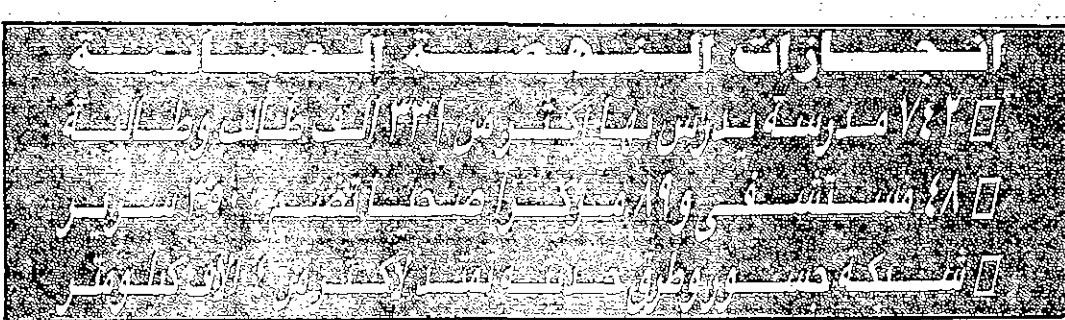 انجازات النهضة العمانية
٧٤٢ مدرسة يدرس بها اكثر من ٣٣١ الف طالب وطالبة
٤٨ مستشفى و٨٩ مركزا صحيا تضم سرير
شبكة جسور وطرق حديثة تمتد لاكثر من الاف كيلومتر